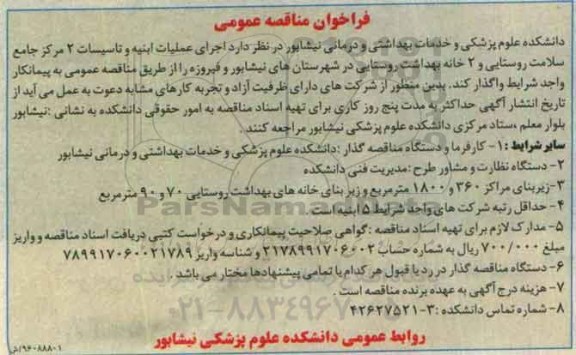 فراخوان مناقصه عمومی
دانشکده علوم پزشکی و خدمات بهداشتی و درمانی نیشابور در نظر دارد اجرای عملیات ابنیه و تاسیسات ۲ مرکز جامع
سلامت روستایی و ۲ خانه بهداشت روستایی در شهرستان های نیشابور و فیروزه را از طریق مناقصه عمومی به پیمانکار
واجد شرایط واگذار کند. بدین منظور از شرکت های دارای ظرفیت آزاد و تجربه کارهای مشابه دعوت به عمل می آید از
تاریخ انتشار آگهی حداکثر به مدت پنج روز کاری برای تهیه اسناد مناقصه به امور حقوقی دانشکده به نشانی :نیشابور
بلوار معلم ،ستاد مرکزی دانشکده علوم پزشکی نیشابور مراجعه کنند.
سایر شرایط :۱- کارفرما و دستگاه مناقصه گذار :دانشکده علوم پزشکی و خدمات بهداشتی و درمانی نیشابور
۲- دستگاه نظارت و مشاور طرح :مدیریت فنی دانشکده
۳-زیربنای مراکز ۳۶۰ و ۱۸۰۰ مترمربع و زیر بنای خانه های بهداشت روستایی ۷۰ و ۹۰ مترمربع
۴- حداقل رتبه شرکت های واجد شرایط ۵ ابنیه است.
۵- مدارک لازم برای تهیه اسناد مناقصه :گواهی صلاحیت پیمانکاری و درخواست کتبی دریافت اسناد مناقصه و واریز
مبلغ ۷۰۰/۰۰۰ ریال به شماره حساب ۲۱۷۸۹۹۱۷۰۶۰۰۲ و شناسه واریز ۷۸۹۹۱۷۰۶۰۰۲۱۷۸۹
۶- دستگاه مناقصه گذار در رد یا قبول هر کدام یا تمامی پیشنهادها مختار می باشد .
۷- هزینه درج آگهی به عهده برنده مناقصه است.
۸- شماره تماس دانشکده :۳-۴۲۶۲۷۵۲۱
روابط عمومی دانشکده علوم پزشکی نیشابور
ParsNamadData
۰۲۱-۸۸۳۴۹۶۷۰